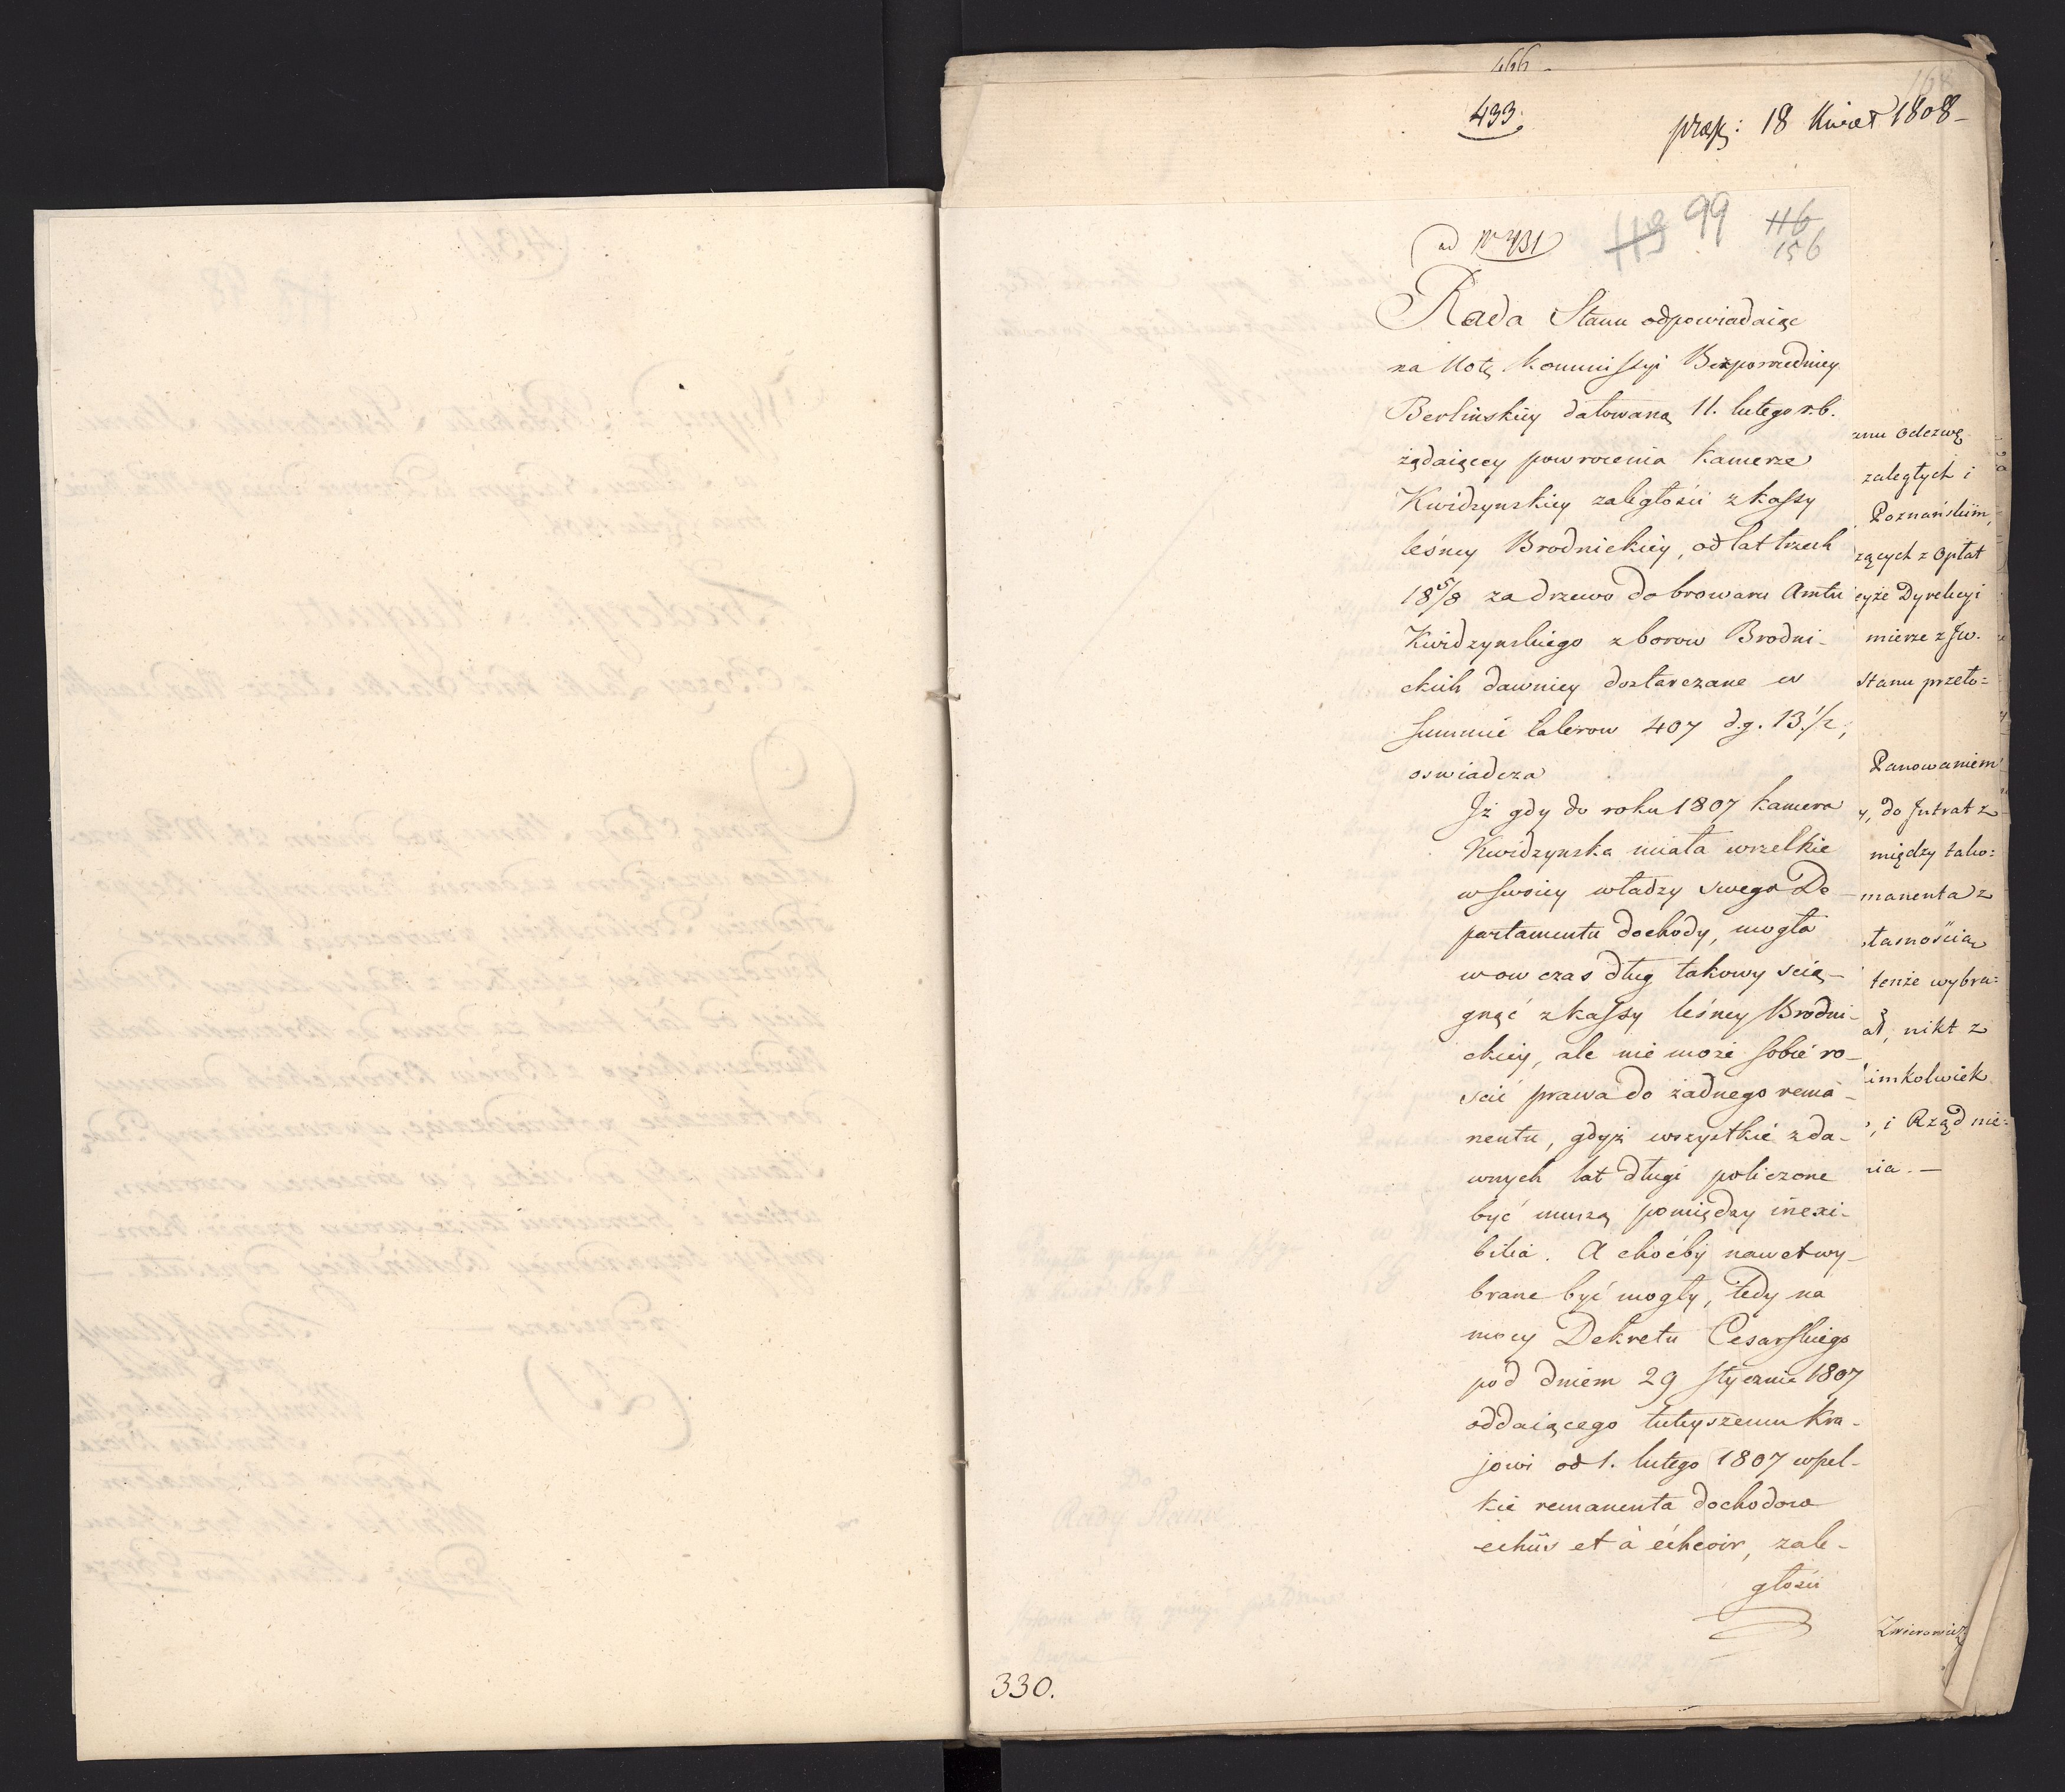 466
433.
præs: 18 Kwiet 1808
168
ad Nº 431
113 99 116
156
Rada Stanu odpowiadaiąc
na Notę Kommissyi Bezposrzedniey
Berlinskiey datowaną 11. lutego r.b.
żądaiącey powrocenia Kamerze
Kwidzynskiey zaległości z kassy
leśney Brodnickiey, od lat trzech
18 5/8 za drzewo do browaru Amtu
Kwidzynskiego z borow Brodni-
ckich dawniey dostarczane w
Summie talerow 407 d.g. 13 1/2,
oswiadcza
Iż gdy do roku 1807 kamera
Kwidzynska miała wszelkie
w swoiey władzy swego De-
partamentu dochody, mogła
wow czas dług takowy scią-
gnąć z kassy leśney Brodni-
ckiey, ale nie może sobie ro-
scić prawa do żadnego rema-
nentu, gdyż wszystkie z da-
wnych lat długi policzone
być muszą pomiędzy inexi-
bilia. A choćby nawet wy-
brane być mogły, tedy na
mocy Dekretu Cesarskiego
pod dniem 29 Stycznia 1807
oddaiącego tuteyszemu Kra-
jowi od 1. lutego 1807 wszel-
kie remanenta dochodow
echüs et à écheoir, zale-
głości
330.
anu Odezwę
zaległych i
Poznańskim,
zących z Opłat
eyże Dyrekcyi
mierze z Jw.
Stanu przeło=
Panowaniem
y, do Intrat z
między tako=
manenta z
tenże wybra=
ał, nikt z
imkolwiek
, i Rząd nie=
nia. —
Zwierowicz